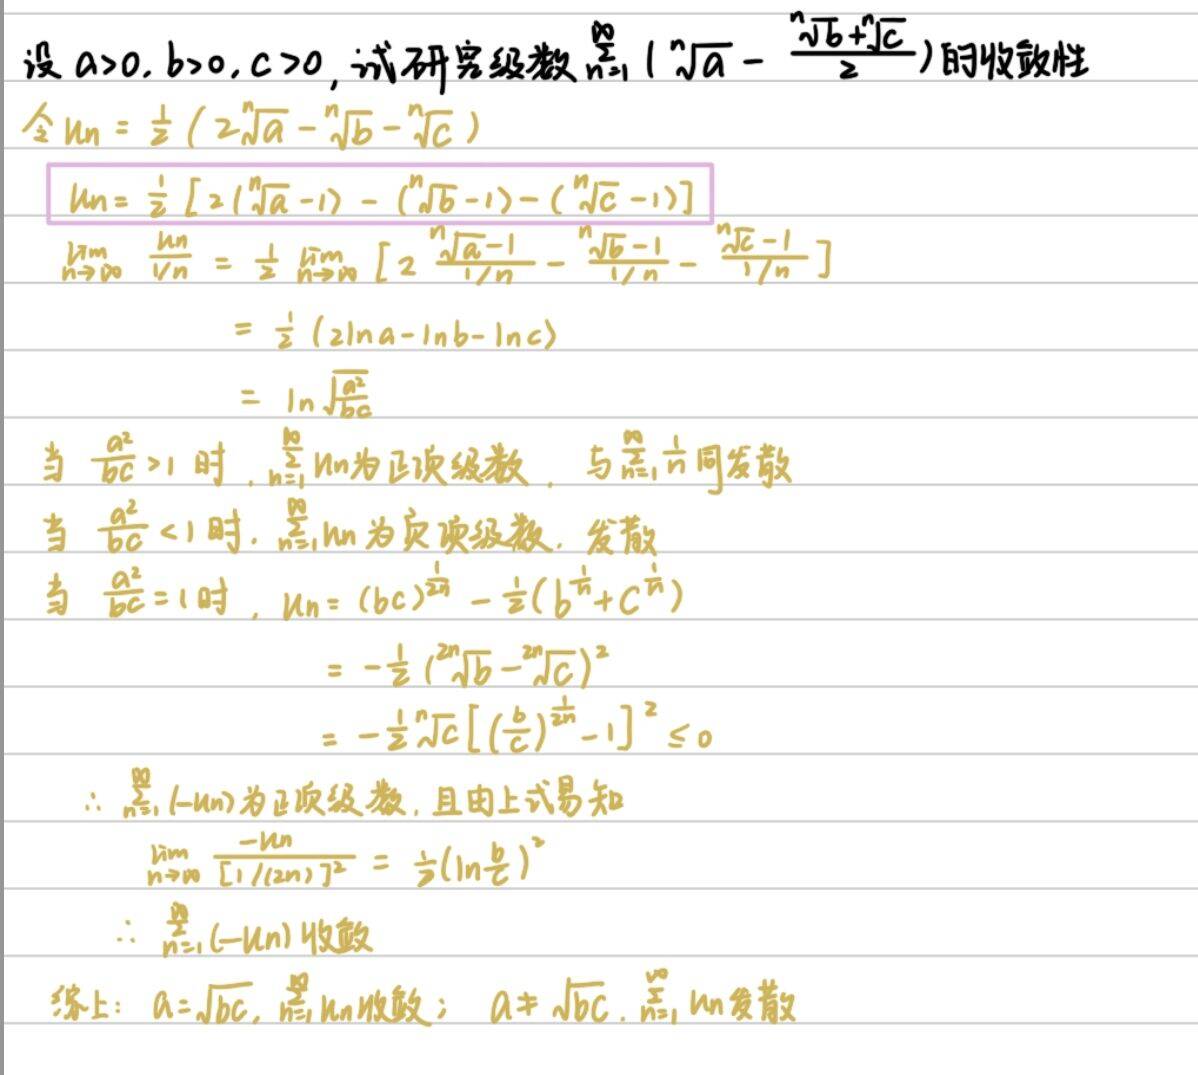 设 a>0, b>0, c>0, 试研究级数 $\sum_{n=1}^{\infty} (\sqrt[n]{a} - \frac{\sqrt[n]{b}+\sqrt[n]{c}}{2})$ 的收敛性
令 $u_n = \frac{1}{2}(2\sqrt[n]{a} - \sqrt[n]{b} - \sqrt[n]{c})$
$u_n = \frac{1}{2}[2(\sqrt[n]{a}-1) - (\sqrt[n]{b}-1) - (\sqrt[n]{c}-1)]$
$\lim_{n\to\infty} \frac{u_n}{1/n} = \frac{1}{2}\lim_{n\to\infty}[2\frac{\sqrt[n]{a}-1}{1/n} - \frac{\sqrt[n]{b}-1}{1/n} - \frac{\sqrt[n]{c}-1}{1/n}]$
$= \frac{1}{2}(2\ln a - \ln b - \ln c)$
$= \ln\sqrt{\frac{a^2}{bc}}$
当 $\frac{a^2}{bc}>1$ 时, $\sum_{n=1}^{\infty} u_n$ 为正项级数, 与 $\sum_{n=1}^{\infty}\frac{1}{n}$ 同发散
当 $\frac{a^2}{bc}<1$ 时, $\sum_{n=1}^{\infty} u_n$ 为负项级数, 发散
当 $\frac{a^2}{bc}=1$ 时, $u_n = (bc)^{\frac{1}{2n}} - \frac{1}{2}(b^{\frac{1}{n}}+c^{\frac{1}{n}})$
$= -\frac{1}{2}(\sqrt[2n]{b} - \sqrt[2n]{c})^2$
$= -\frac{1}{2}\sqrt[n]{c}[(\frac{b}{c})^{\frac{1}{2n}}-1]^2 \leq 0$
∴ $\sum_{n=1}^{\infty}(-u_n)$ 为正项级数, 且由上式易知
$\lim_{n\to\infty}\frac{-u_n}{[1/(2n)]^2} = \frac{1}{2}(\ln\frac{b}{c})^2$
∴ $\sum_{n=1}^{\infty}(-u_n)$ 收敛
综上: $a=\sqrt{bc}$, $\sum_{n=1}^{\infty} u_n$ 收敛; $a\neq\sqrt{bc}$, $\sum_{n=1}^{\infty} u_n$ 发散